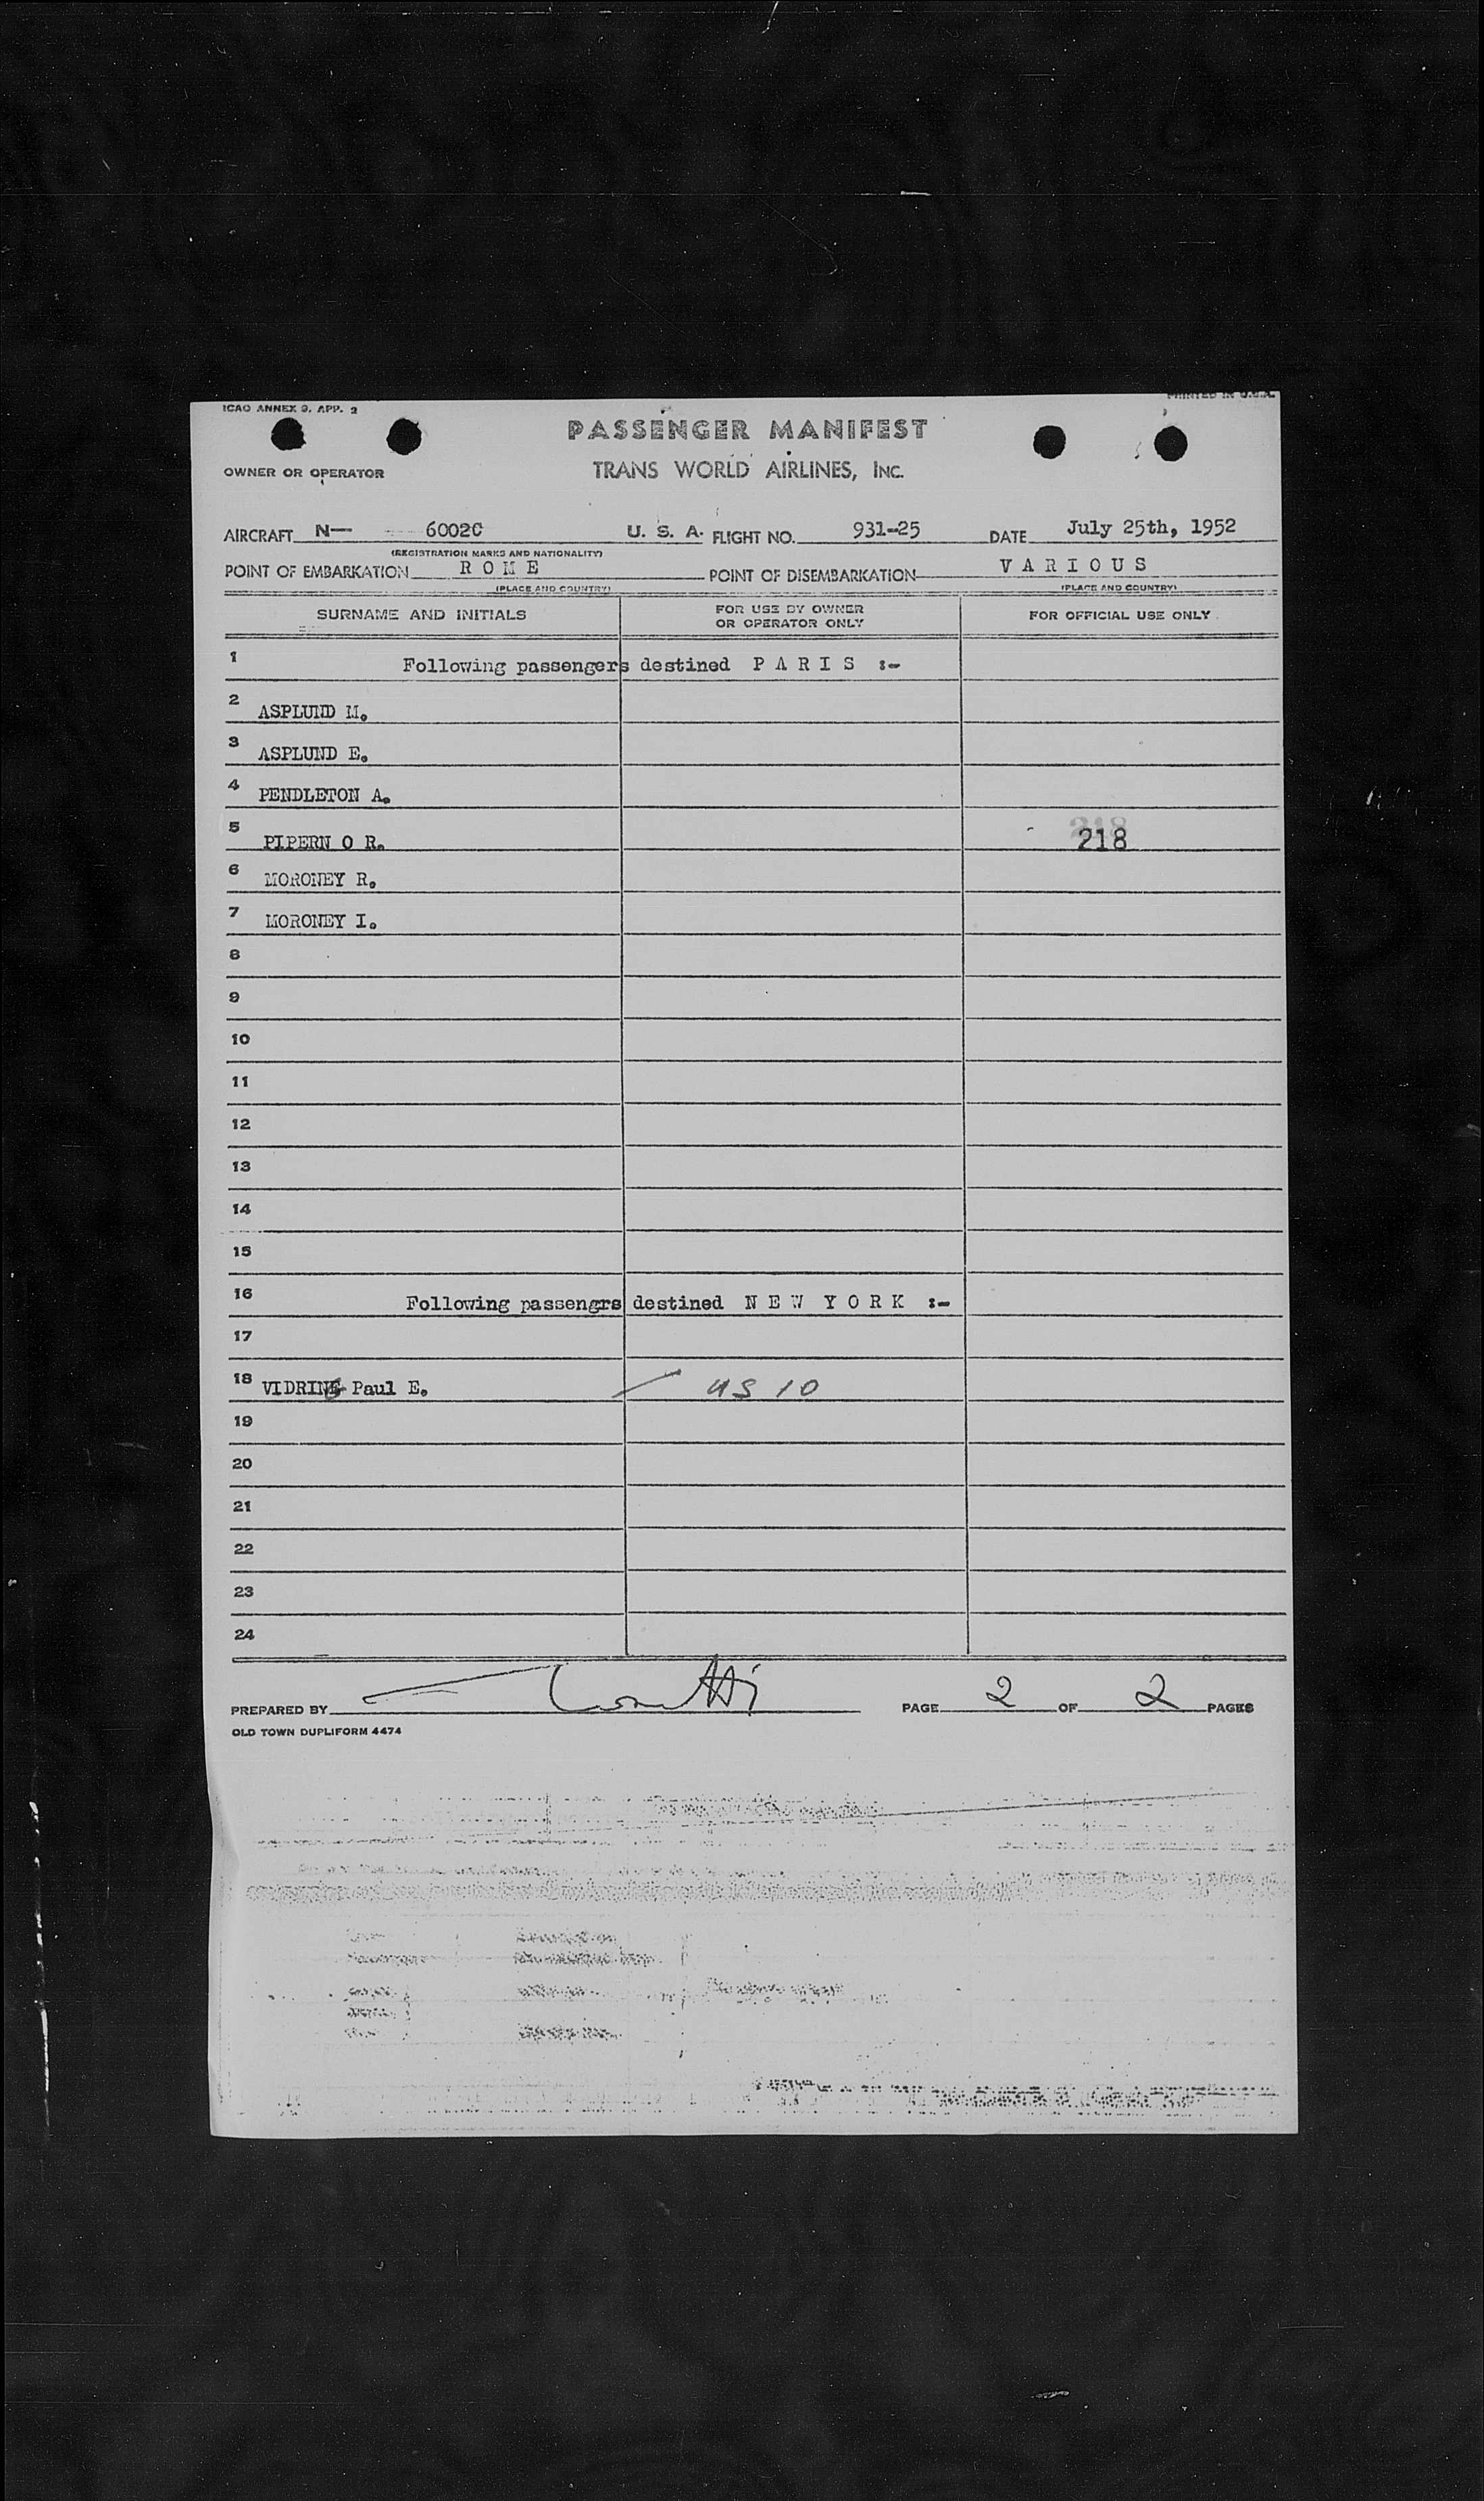 ICAO ANNEX 9, APP. 2
PRINTED IN U.S.A.
PASSENGER MANIFEST
OWNER OR OPERATOR TRANS WORLD AIRLINES, INC.
AIRCRAFT N— 6002C U. S. A. FLIGHT NO. 931-25 DATE July 25th, 1952
(REGISTRATION MARKS AND NATIONALITY)
POINT OF EMBARKATION R O M E POINT OF DISEMBARKATION V A R I O U S
(PLACE AND COUNTRY) (PLACE AND COUNTRY)
SURNAME AND INITIALS FOR USE BY OWNER OR OPERATOR ONLY FOR OFFICIAL USE ONLY
1 Following passengers destined P A R I S :-
2 ASPLUND M.
3 ASPLUND E.
4 PENDLETON A.
5 PIPERN O R. 218
6 MORONEY R.
7 MORONEY I.
8
9
10
11
12
13
14
15
16 Following passengrs destined N E W Y O R K :-
17
18 VIDRINE Paul E. US 10
19
20
21
22
23
24
PREPARED BY PAGE 2 OF 2 PAGES
OLD TOWN DUPLIFORM 4474